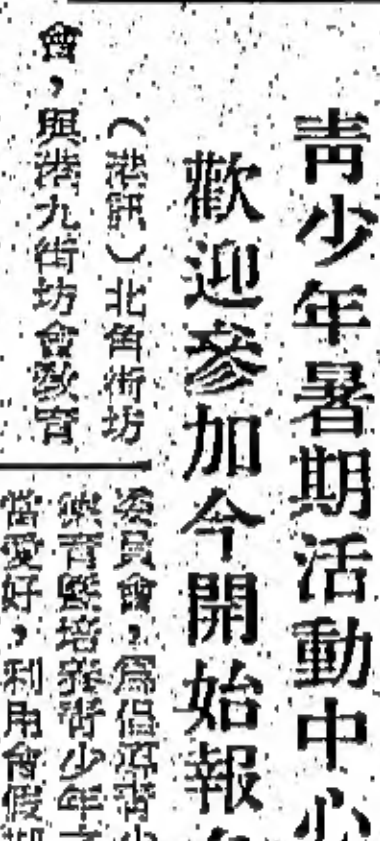 青少年暑期活動中心
歡迎參加今開始報
（港訊）北角街坊
會，與港九街坊會教育
委員會，為倡導青少
教育暨培養青少年
當愛好，利用會假期